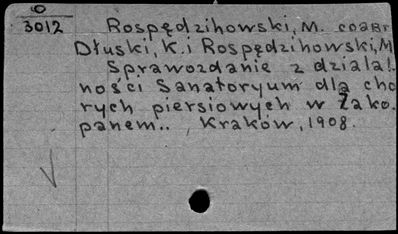 O
3012
Rospędzihowski, M. соавт
Dłuski, K. i Rospędzihowski, M
Sprawozdanie z działal.
ności Sanatoryum dla cho
rych piersiowych w Zako.
panem.. Kraków, 1908.